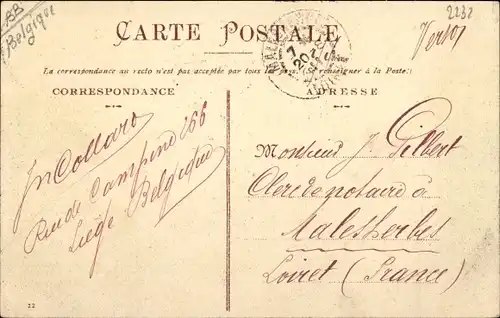 BB
Belgique
2232
CARTE POSTALE
Verso!
La correspondance au recto n'est pas acceptée par tous les pays. (Se renseigner à la Poste)
CORRESPONDANCE
ADRESSE
Jn Collard
Rue de Campine 166
Liège Belgique
Monsieur J. Gilbert
Clerc de notaire à
Malesherbes
Loiret (France)
22